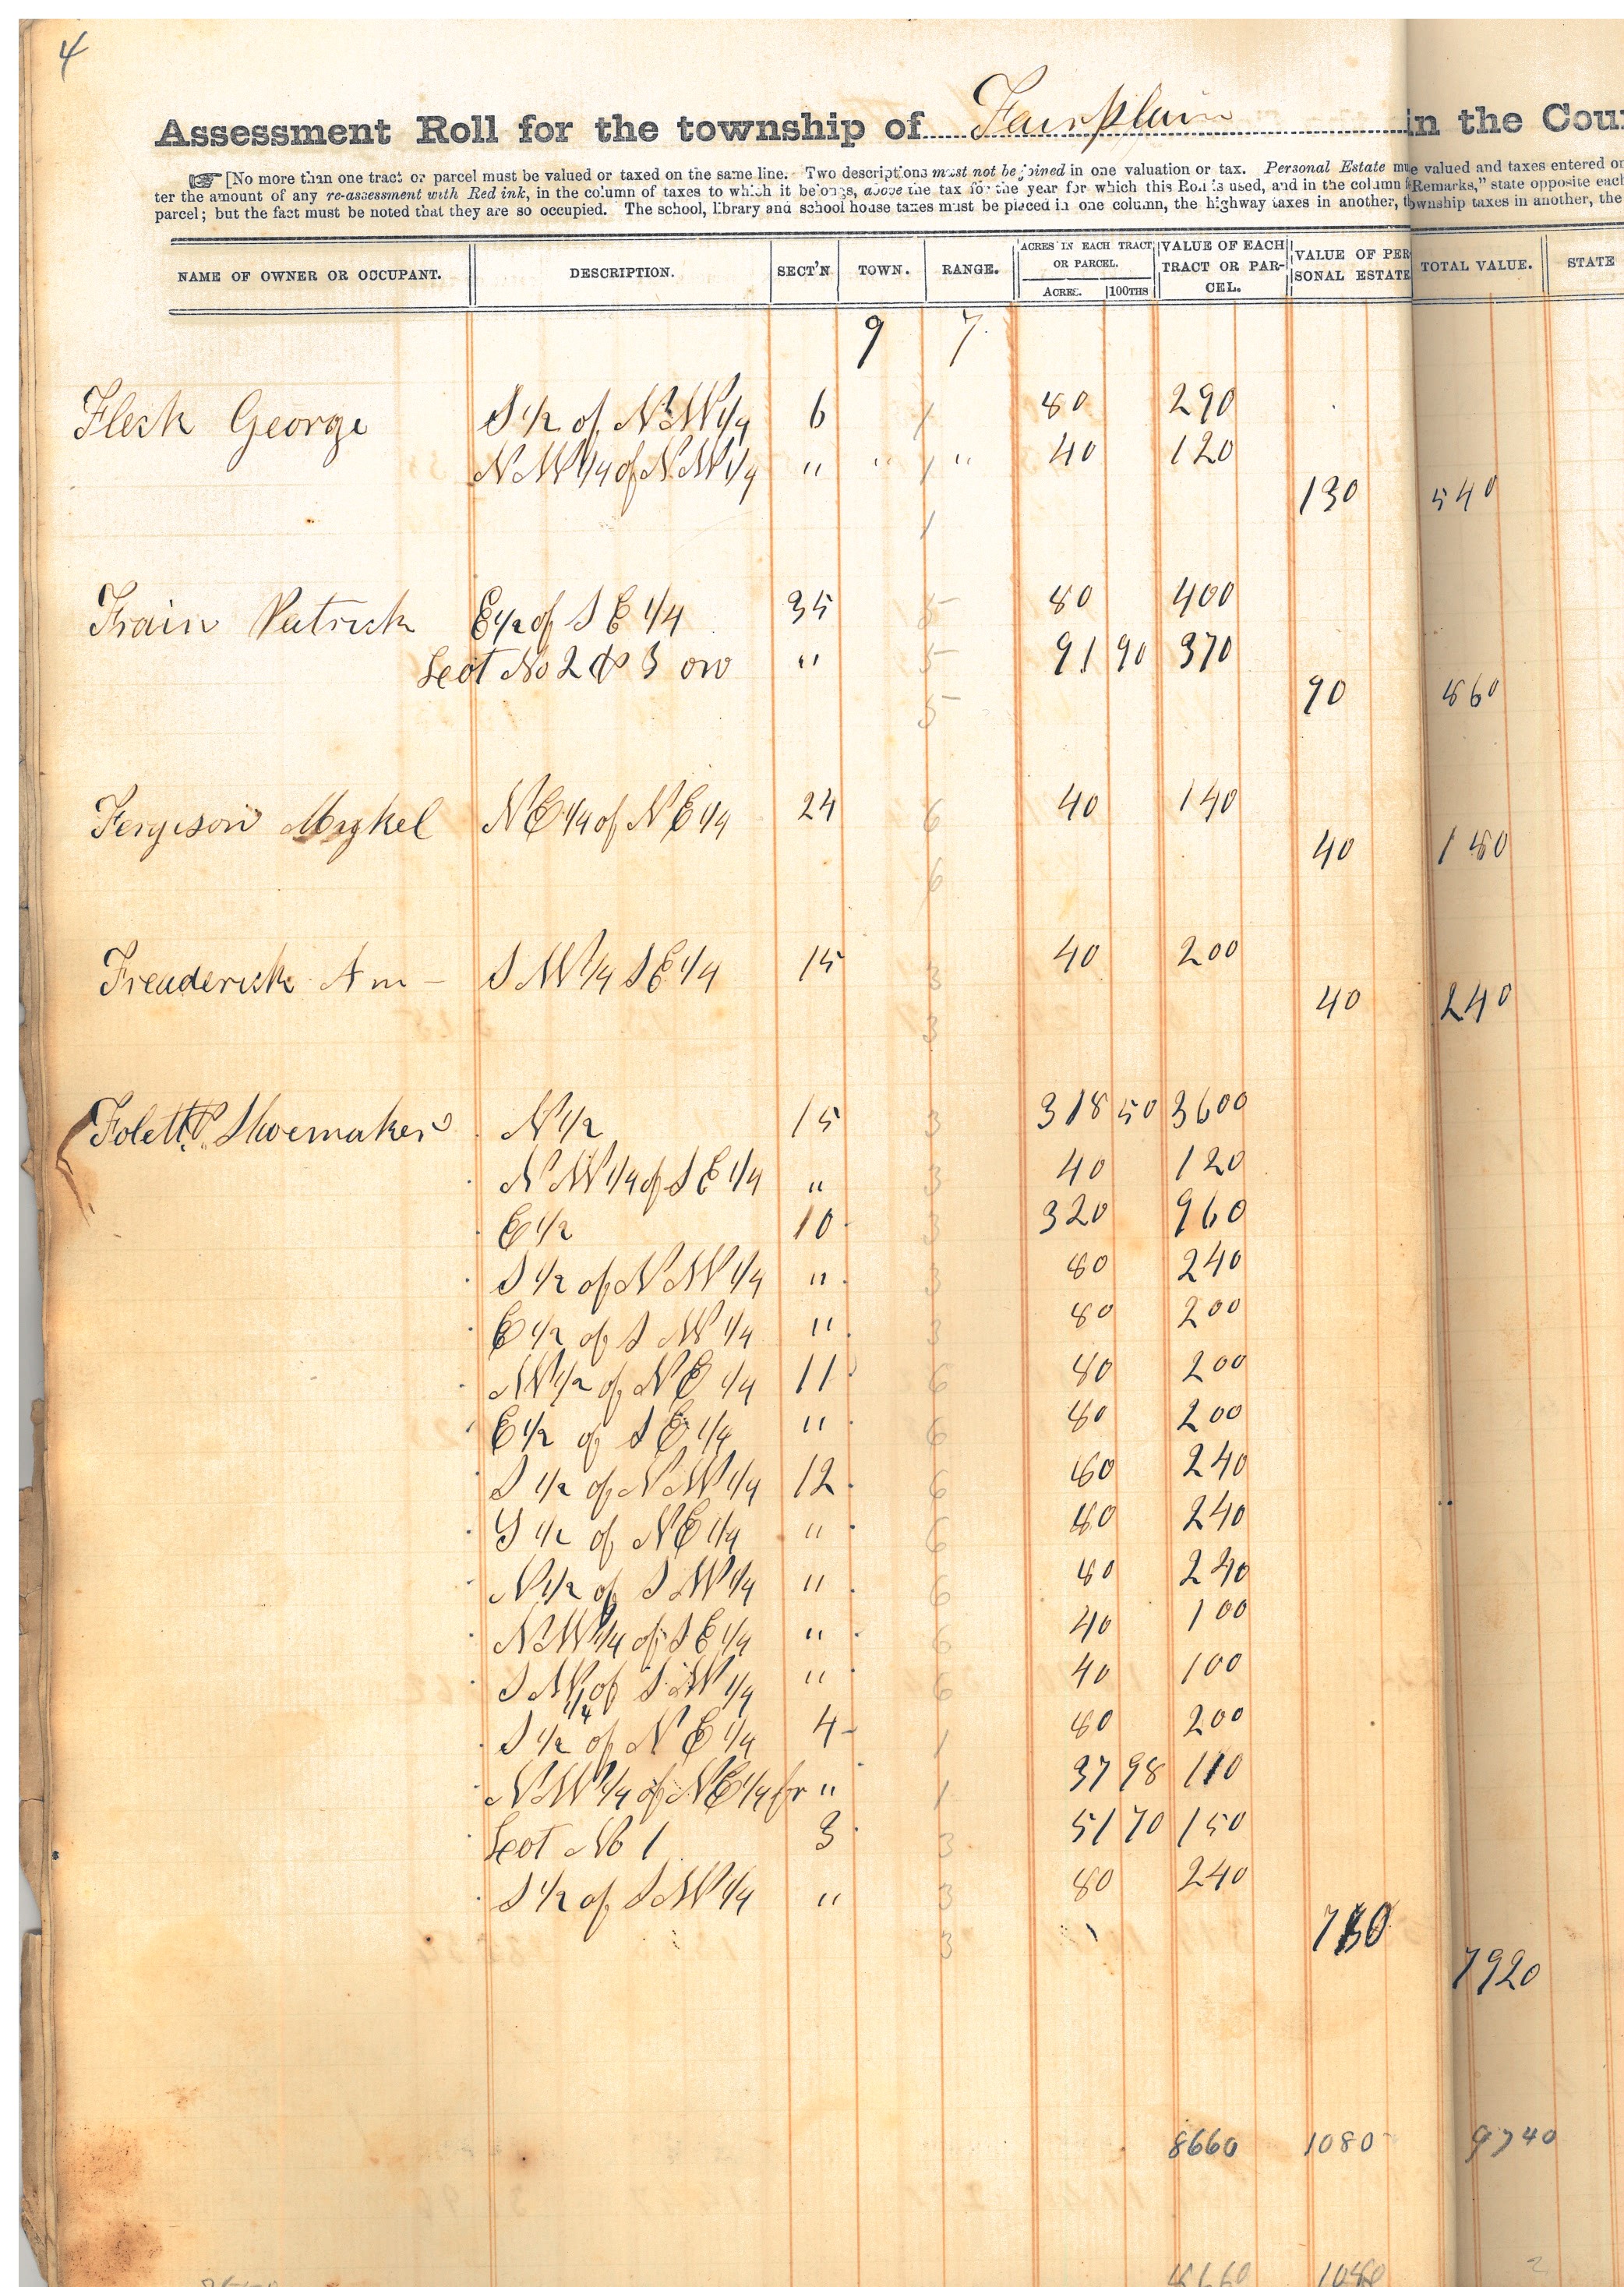 4
Assessment Roll for the township of Fairplain in the Cou
[No more than one tract or parcel must be valued or taxed on the same line. Two descriptions must not be joined in one valuation or tax. Personal Estate mu e valued and taxes entered or
ter the amount of any re-assessment with Red ink, in the column of taxes to which it belongs, above the tax for the year for which this Roll is used, and in the column "Remarks," state opposite each
parcel; but the fact must be noted that they are so occupied. The school, library and school house taxes must be placed in one column, the highway taxes in another, township taxes in another, the
NAME OF OWNER OR OCCUPANT. DESCRIPTION. SECT'N TOWN. RANGE. ACRES IN EACH TRACT OR PARCEL. ACRES. 100THS VALUE OF EACH TRACT OR PARCEL. VALUE OF PERSONAL ESTATE TOTAL VALUE. STATE
9 7
Flesk George S 1/2 of N W 1/4 6 1 80 290
N W 1/4 of N W 1/4 " " 1 " 40 120
1 130 540
Train Patrick E 1/2 of S E 1/4 35 5 80 400
Leot No 2 & 3 on " 5 91 90 370
5 90 860
Fergison Mykel N E 1/4 of N E 1/4 24 6 40 140
6 40 180
Freaderick Am - S W 1/4 S E 1/4 15 3 40 200
3 40 240
Folett & Shoemaker N 1/2 15 3 318 50 3600
N W 1/4 of S E 1/4 " 3 40 120
E 1/2 10 3 320 960
S 1/2 of N W 1/4 " 3 80 240
E 1/2 of S W 1/4 " 3 80 200
W 1/2 of N E 1/4 11 6 80 200
E 1/2 of S E 1/4 " 6 80 200
S 1/2 of N W 1/4 12 6 80 240
S 1/2 of N E 1/4 " 6 80 240
N 1/2 of S W 1/4 " 6 80 240
N W 1/4 of S E 1/4 " 6 40 100
S W 1/4 of S W 1/4 " 6 40 100
S 1/2 of N E 1/4 4 1 80 200
N W 1/4 of N E 1/4 fr " 1 37 98 110
Leot No 1 3 3 51 70 150
S 1/2 of S W 1/4 " 3 80 240
3 780
7920
8660 1080 9740
8660 1080